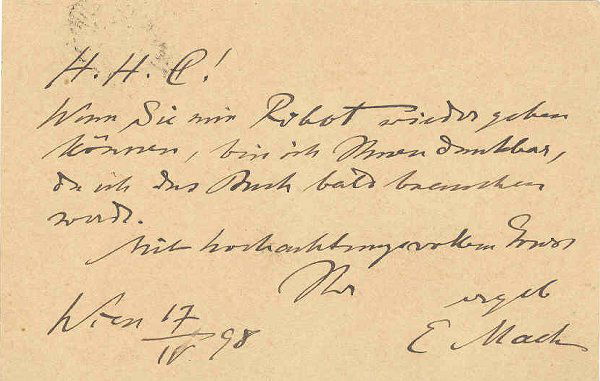 H. H. C!
Wenn Sie mir Ribot wieder geben
können, bin ich Ihnen dankbar,
da ich das Buch bald brauchen
werde.
Mit hochachtungsvollem Gruss
Ihr ergeb
Wien 17/IV 98 E Mach